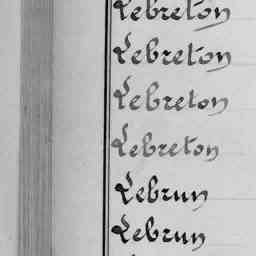 Lebreton
Lebreton
Lebreton
Lebreton
Lebrun
Lebrun